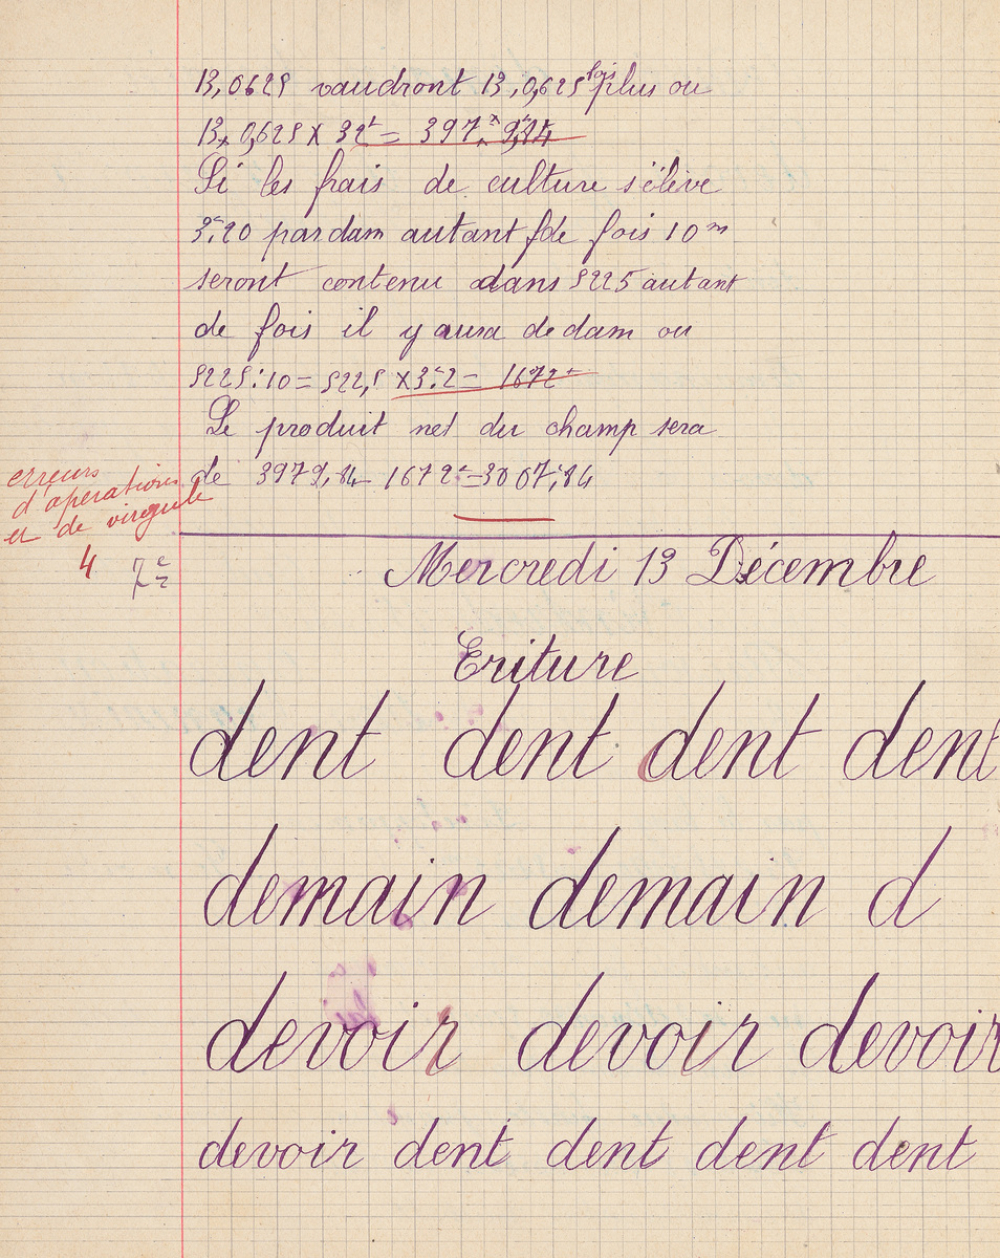 13,0625 vaudront 13,0,625 fois plus ou
13,0,625 X 32f = 397
Si les frais de culture s'élève
3f.20 par dam autant de fois 10m
seront contenu dans 5225 autant
de fois il y aura de dam ou
5225:10 = 522,5 X3f.2 = 1672f
Le produit net du champ sera
de 3979,84 - 1672f = 3007f,84
erreurs
d'opérations
et de virgule
4
Mercredi 13 Décembre
Eriture
dent dent dent dent
demain demain d
devoir devoir devoir
devoir dent dent dent dent